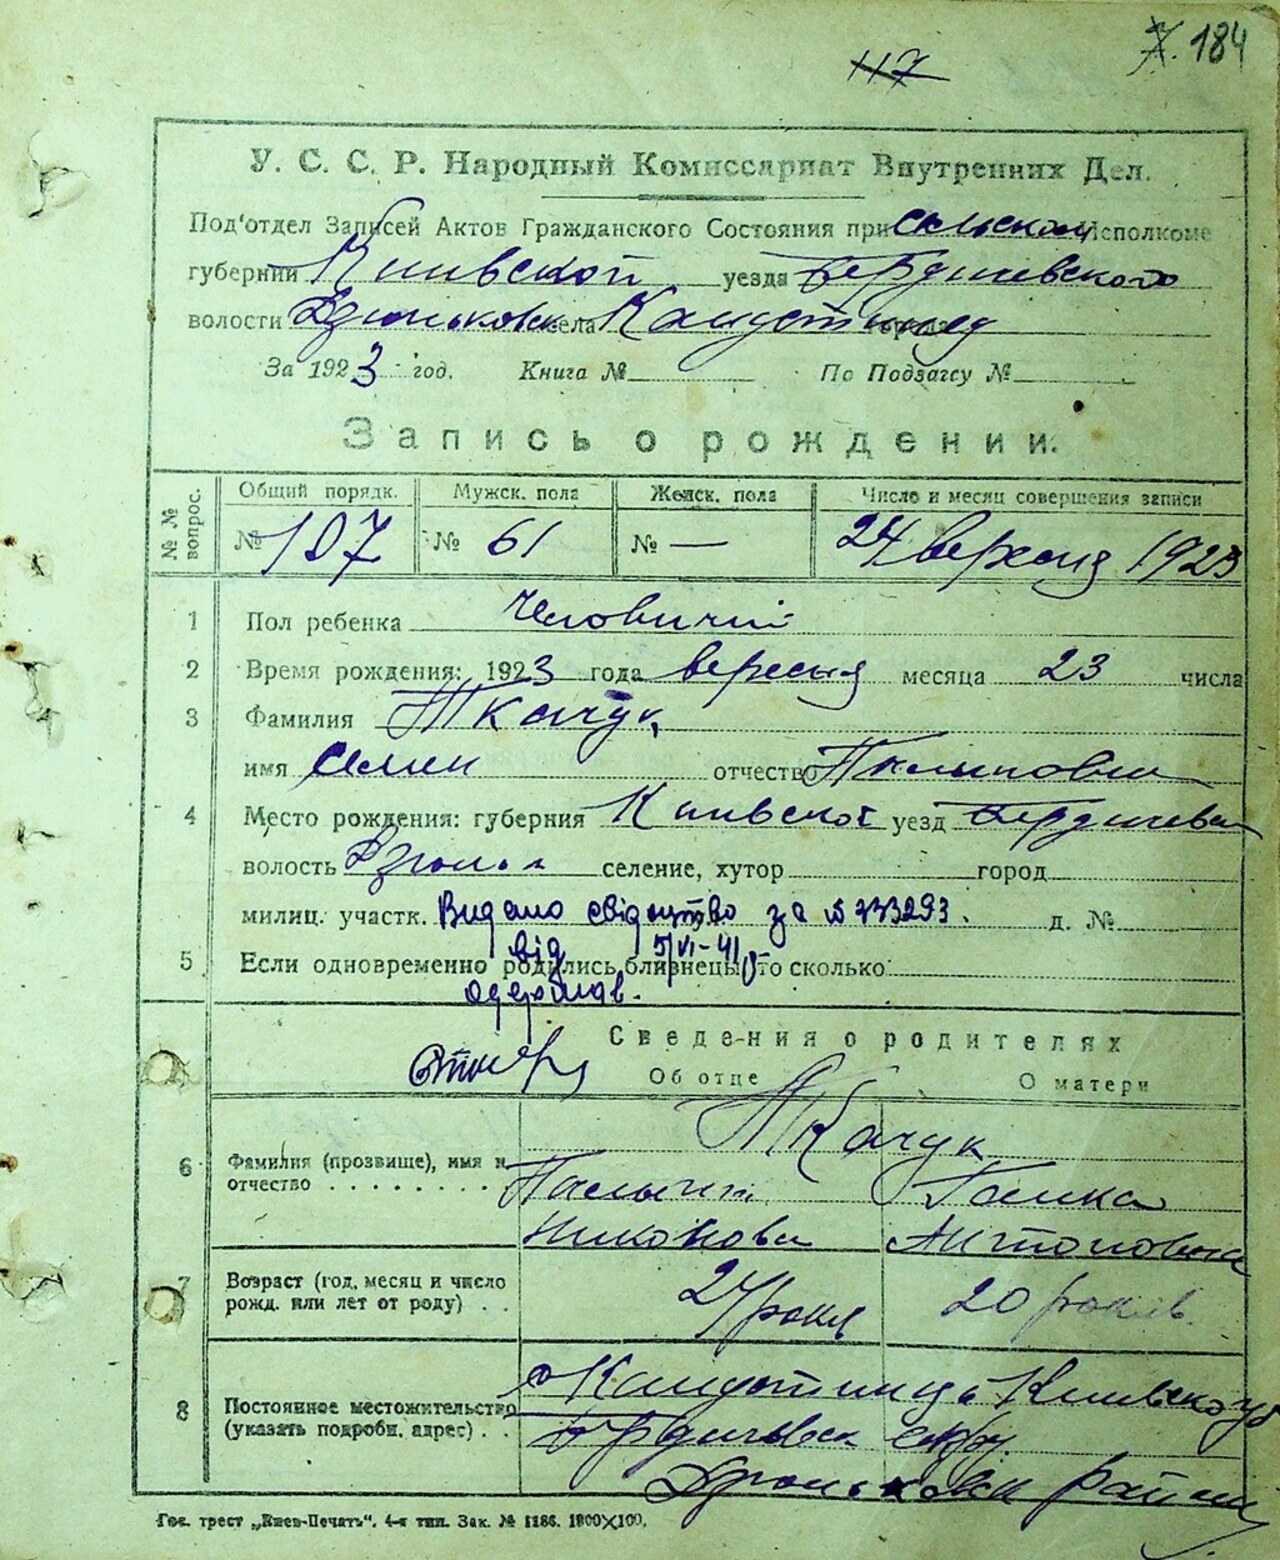 7. 184
117
У. С. С. Р. Народный Комиссариат Внутренних Дел.
Под'отдел Записей Актов Гражданского Состояния при сельском Исполкоме
губернии Киивской уезда Бердичевского
волости Дзюньковск села
За 1923 год. Книга № По Подзагсу №
Запись о рождении.
№ № вопрос. Общий порядк. Мужск. пола Женск. пола Число и месяц совершения записи
№ 107 № 61 № — 24 вересня 1923
1 Пол ребенка Человичий
2 Время рождения: 1923 года вересня месяца 23 числа
3 Фамилия Ткачук
имя Семен отчество
4 Место рождения: губерния Киивской уезд Бердичевск
волость Дзюньк селение, хутор город
милиц. участк. Видано свідоцтво за № 733293. д. №
від 5/VI-41 р
5 Если одновременно родились близнецы, то сколько:
Сведения о родителях
Об отце О матери
Ткачук
6 Фамилия (прозвище), имя и
отчество . . . . . . . . Ганка
Никонови Антоновна
7 Возраст (год, месяц и число
рожд. или лет от роду) . . 24 роки 20 років.
8 Постоянное местожительство
(указать подробн. адрес) . .
Бердичевск окру.
Дзюньковск району
Гос. трест „Киев-Печать“. 4-я тип. Зак. № 1186. 1000×100.